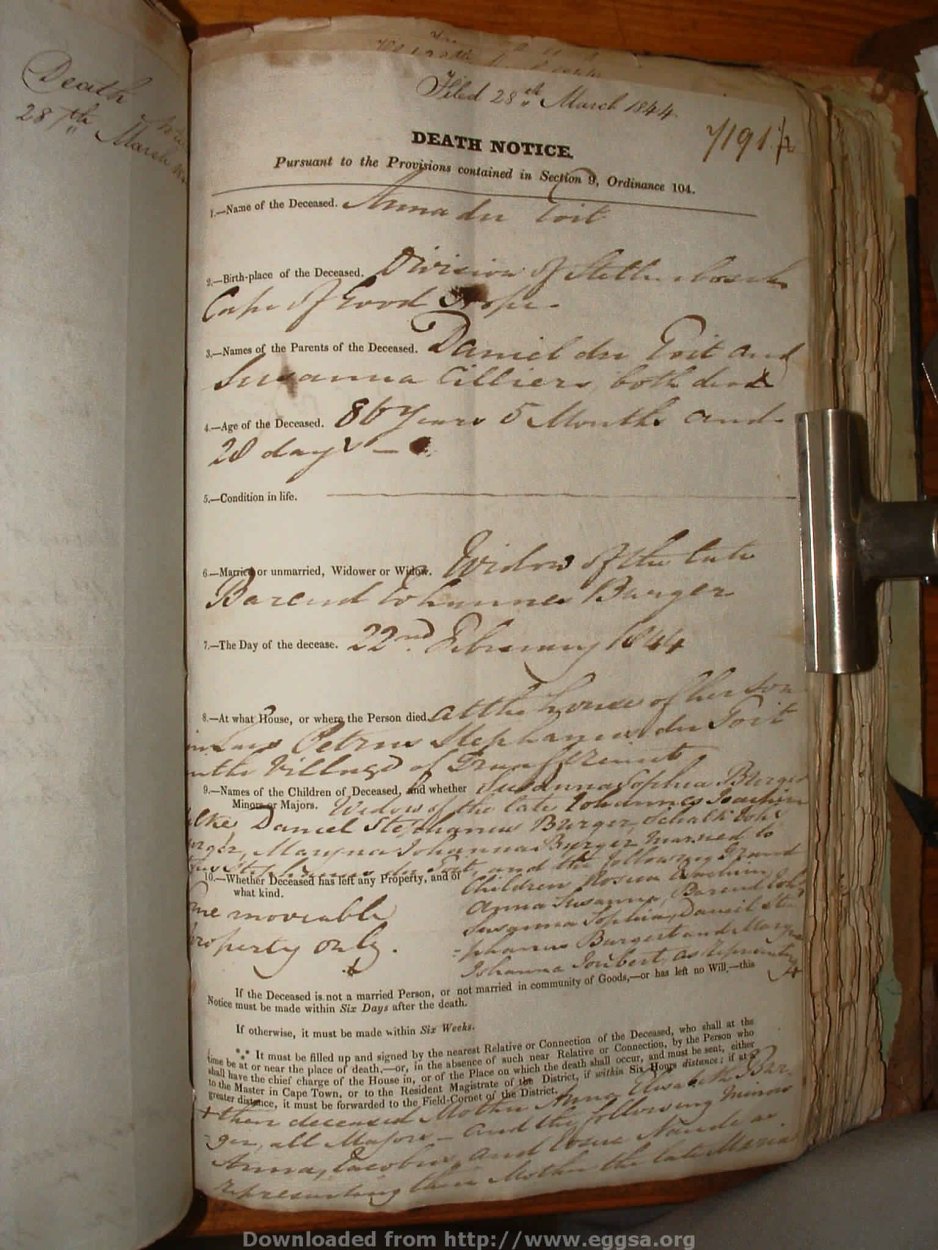 Death
28th March
Filed 28th March 1844
7191
DEATH NOTICE.
Pursuant to the Provisions contained in Section 9, Ordinance 104.
1.—Name of the Deceased. Anna du Toit
2.—Birth-place of the Deceased. Division of Stellenbosch
Cape of Good Hope
3.—Names of the Parents of the Deceased. Daniel du Toit and
Susanna Cilliers, both dead
4.—Age of the Deceased. 86 Years 5 Months and
28 days
5.—Condition in life.
6.—Married or unmarried, Widower or Widow. Widow of the late
Barend Johannes Burger
7.—The Day of the decease. 22nd February 1844
8.—At what House, or where the Person died. at the house of her son
in Law Petrus Stephanus du Toit
in the Village of Graaff Reinet
9.—Names of the Children of Deceased, and whether Susanna Sophia Burger
Minors or Majors. Widow of the late Johannes Joachim
Daniel Stephanus Burger, Schalk
Johanna Burger married to
and the following Grand
10.—Whether Deceased has left any Property, and of
what kind.
Children Rosina
Anna Susanna, Barend
moveable
Susanna Sophia, Daniel Ste
property only.
phanus Burgert and
Johanna Joubert, as representing
If the Deceased is not a married Person, or not married in community of Goods,—or has left no Will,—this
Notice must be made within Six Days after the death.
If otherwise, it must be made within Six Weeks.
*** It must be filled up and signed by the nearest Relative or Connection of the Deceased, who shall at the
time be at or near the place of death,—or, in the absence of such near Relative or Connection, by the Person who
shall have the chief charge of the House in, or of the Place on which the death shall occur, and must be sent, either
to the Master in Cape Town, or to the Resident Magistrate of the District, if within Six Hours distance; if at a
greater distance, it must be forwarded to the Field-Cornet of the District.
their deceased Mother Anna Elisabeth Bur-
ger, all Majors - and the following minors
Anna, Jacobus, and Naude as
representing their Mother the late Maria
Downloaded from http://www.eggsa.org